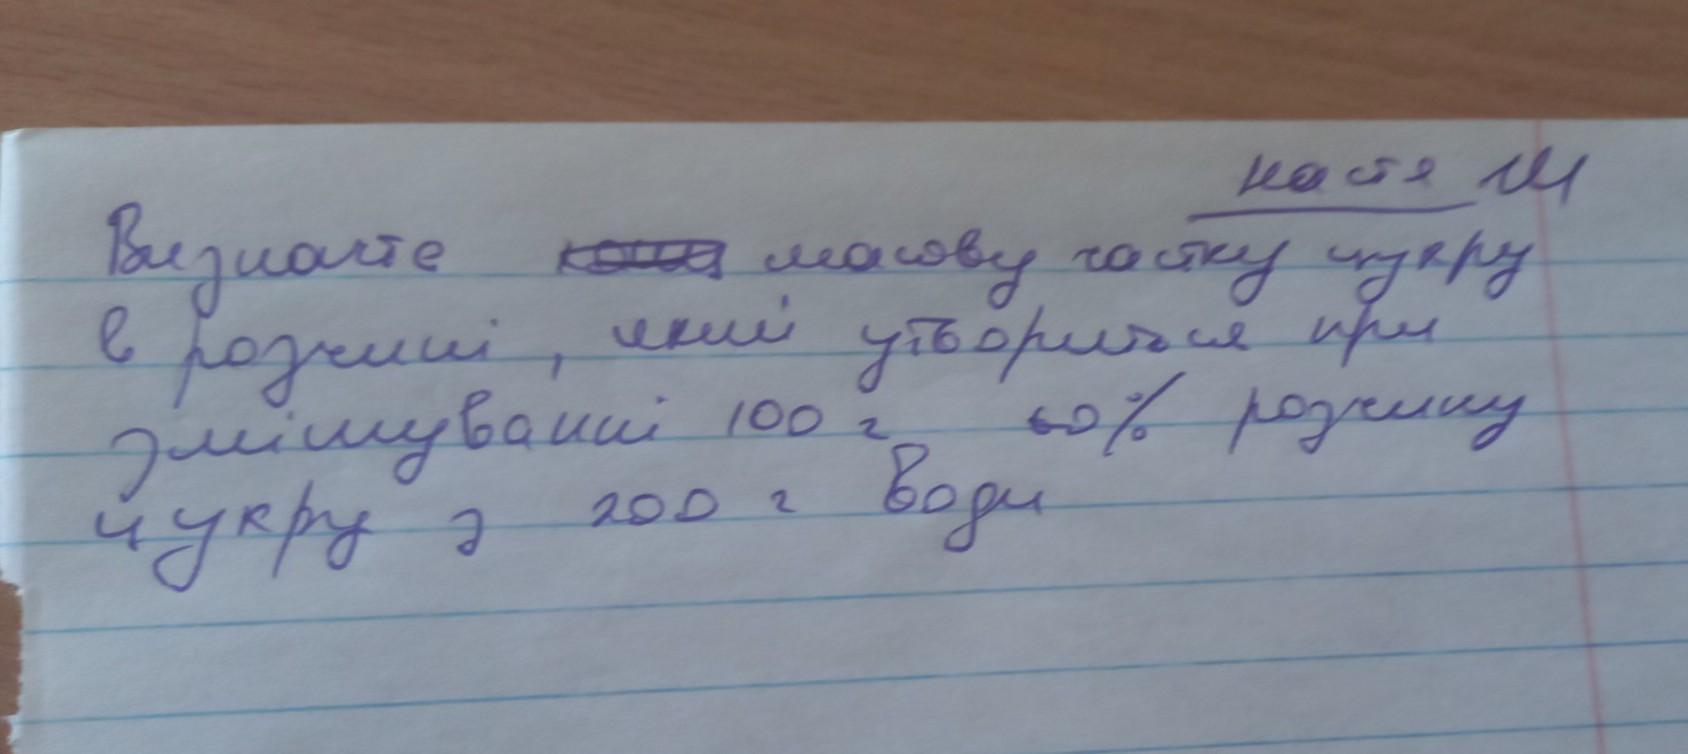 Настя Ш
Визначте масову частку цукру
в розчині, який утвориться при
змішуванні 100 г 60% розчину
цукру з 200 г води